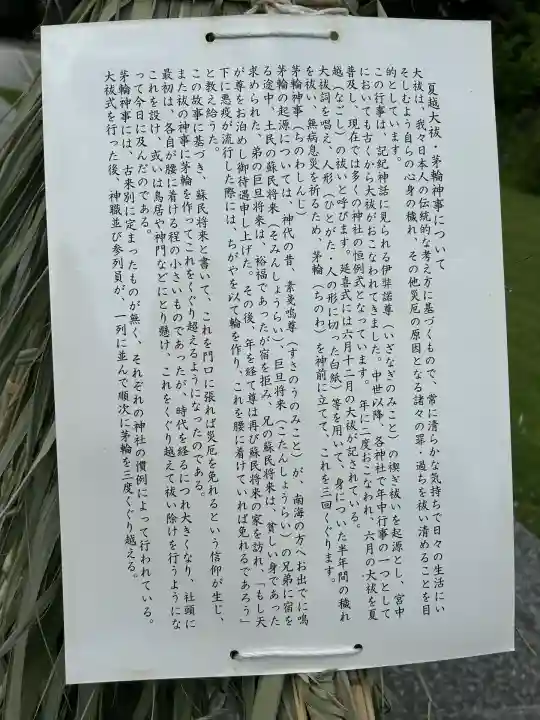 夏越大祓・茅輪神事について
大祓は、我々日本人の伝統的な考え方に基づくもので、常に清らかな気持ちで日々の生活にい
そしむよう自らの心身の穢れ、その他災厄の原因となる諸々の罪・過ちを祓い清めることを目
的としています。
この行事は、記紀神話に見られる伊弉諾尊（いざなぎのみこと）の禊ぎ祓いを起源とし、宮中
においても古くから大祓がおこなわれてきました。中世以降、各神社で年中行事の一つとして
普及し、現在では多くの神社の恒例式となっています。年に二度おこなわれ、六月の大祓を夏
越（なごし）の祓いと呼びます。延喜式には六月十二月の大祓が記されている。
大祓詞を唱え、人形（ひとがた・人の形に切った白紙）等を用いて、身についた半年間の穢れ
を祓い、無病息災を祈るため、茅輪（ちのわ）を神前に立てて、これを三回くぐります。
茅輪神事（ちのわしんじ）
茅輪の起源については、神代の昔、素戔嗚尊（すさのうのみこと）が、南海の方へお出でに鳴
る途中、土民の蘇民将来（そみんしょうらい）、巨旦将来（こたんしょうらい）の兄弟に宿を
求められた、弟の巨旦将来は、裕福であったが宿を拒み、兄の蘇民将来は、貧しい身であった
が尊をお泊めし御待遇申し上げた。その後、年を経て尊は再び蘇民将来の家を訪れ、「もし天
下に悪疫が流行した際には、ちがやを以て輪を作り、これを腰に着けていれば免れるであろう」
と教え給うた。
この故事に基づき、蘇民将来と書いて、これを門口に張れば災厄を免れるという信仰が生じ、
また祓の神事に茅輪を作ってこれをくぐり越えるようになったのである。
最初は、各自が腰に着ける程の小さいものであったが、時代を経るにつれ大きくなり、社頭に
これを設け、或いは鳥居や神門などにとり懸け、これをくぐり越えて祓い除けを行うようにな
って今日に及んだのである。
茅輪神事には、古来別に定まったものが無く、それぞれの神社の慣例によって行われている。
大祓式を行った後、神職並び参列員が、一列に並んで順次に茅輪を三度くぐり越える。